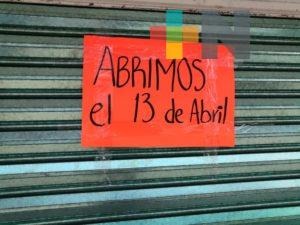 ABRIMOS
el 13 de Abril